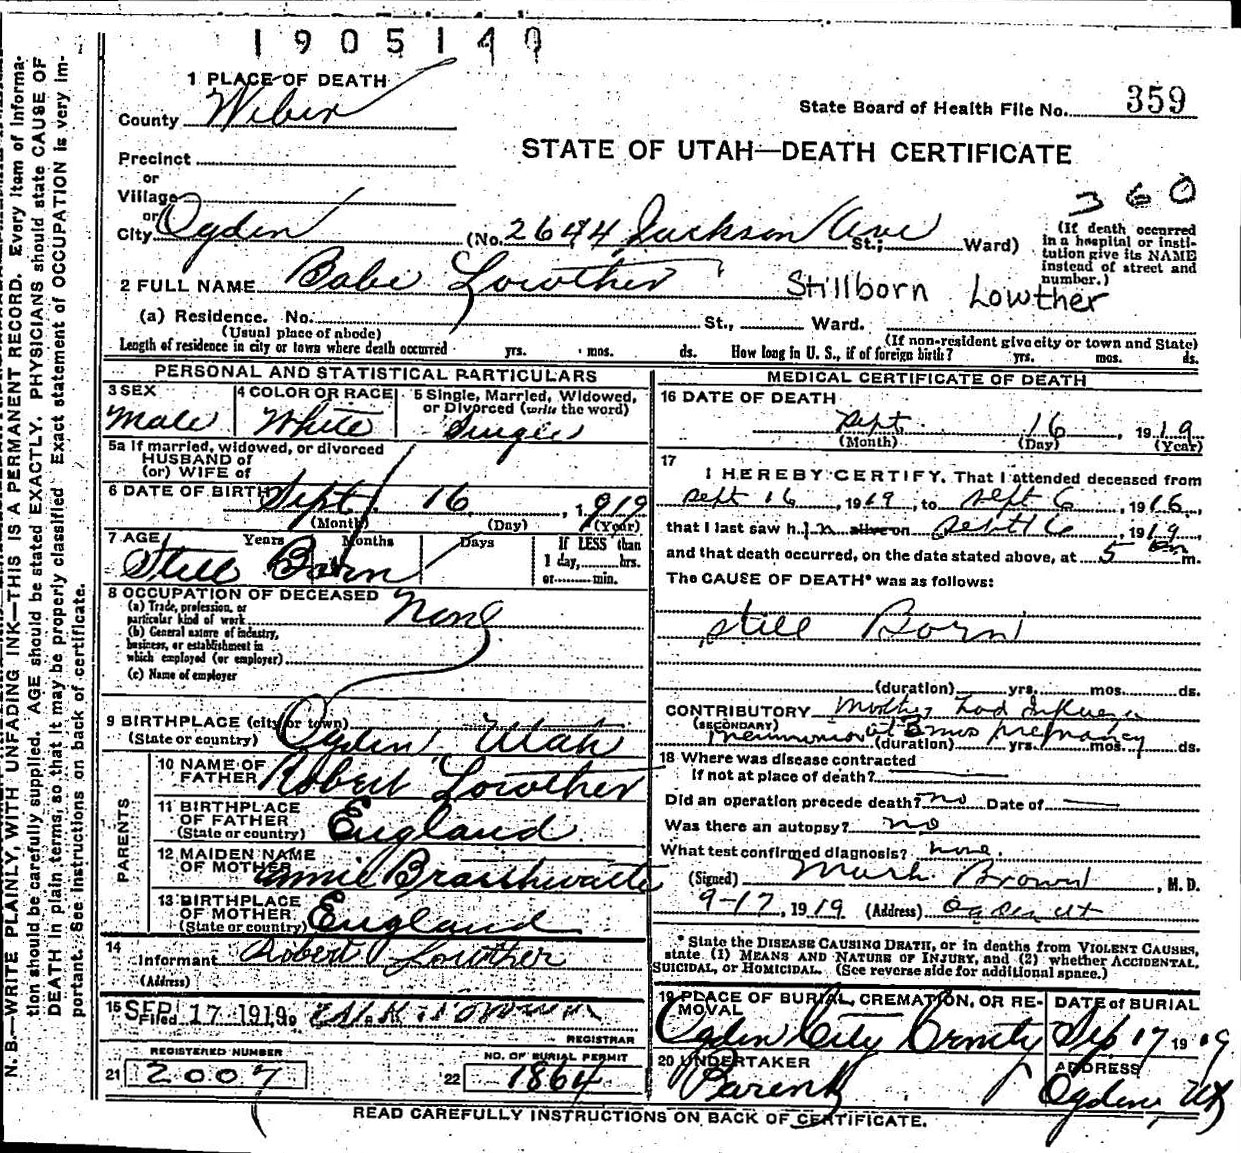 1905149
1 PLACE OF DEATH
County Weber
State Board of Health File No. 359
STATE OF UTAH—DEATH CERTIFICATE
Precinct
or
Village
or
360
City Ogden (No. 2644 Jackson Ave St.; Ward)
(If death occurred in a hospital or institution give its NAME instead of street and number.)
2 FULL NAME Babe Lowther Stillborn Lowther
(a) Residence. No. St., Ward.
(Usual place of abode) (If non-resident give city or town and State)
Length of residence in city or town where death occurred yrs. mos. ds. How long in U. S., if of foreign birth? yrs. mos. ds.
PERSONAL AND STATISTICAL PARTICULARS
3 SEX 4 COLOR OR RACE 5 Single, Married, Widowed, or Divorced (write the word)
Male White Single
5a If married, widowed, or divorced
HUSBAND of
(or) WIFE of
6 DATE OF BIRTH Sept 16, 1919
(Month) (Day) (Year)
7 AGE Years Months Days If LESS than
1 day, hrs.
or min.
Still Born
8 OCCUPATION OF DECEASED None
(a) Trade, profession, or
particular kind of work
(b) General nature of industry,
business, or establishment in
which employed (or employer)
(c) Name of employer
9 BIRTHPLACE (city or town)
(State or country) Ogden Utah
PARENTS
10 NAME OF
FATHER Robert Lowther
11 BIRTHPLACE
OF FATHER
(State or country) England
12 MAIDEN NAME
OF MOTHER Annie Braithwaite
13 BIRTHPLACE
OF MOTHER
(State or country) England
14
Informant Robert Lowther
(Address)
15 SEP 17 1919
Filed
REGISTRAR
REGISTERED NUMBER NO. OF BURIAL PERMIT
21 2007 22 1864
MEDICAL CERTIFICATE OF DEATH
16 DATE OF DEATH
Sept 16, 1919
(Month) (Day) (Year)
17
I HEREBY CERTIFY, That I attended deceased from
Sept 16, 1919, to Sept 6, 1916,
that I last saw h im alive on Sept 16, 1919
and that death occurred, on the date stated above, at 5 m.
The CAUSE OF DEATH* was as follows:
still Born
(duration) yrs. mos. ds.
CONTRIBUTORY Mother had Influenza
(SECONDARY)
Pneumonia at 3 mos pregnancy
(duration) yrs. mos. ds.
18 Where was disease contracted
If not at place of death?
Did an operation precede death? no Date of
Was there an autopsy? no
What test confirmed diagnosis? none.
(Signed) Mark Brown, M. D.
9-17, 1919 (Address) Ogden Ut
* State the DISEASE CAUSING DEATH, or in deaths from VIOLENT CAUSES,
state (1) MEANS AND NATURE OF INJURY, and (2) whether ACCIDENTAL,
SUICIDAL, OR HOMICIDAL. (See reverse side for additional space.)
19 PLACE OF BURIAL, CREMATION, OR RE-
MOVAL DATE of BURIAL
Ogden City Sep 17 1919
20 UNDERTAKER ADDRESS
Parent Ogden, Ut
READ CAREFULLY INSTRUCTIONS ON BACK OF CERTIFICATE.
N. B.—WRITE PLAINLY, WITH UNFADING INK—THIS IS A PERMANENT RECORD. Every item of informa-
tion should be carefully supplied. AGE should be stated EXACTLY. PHYSICIANS should state CAUSE OF
DEATH in plain terms, so that it may be properly classified. Exact statement of OCCUPATION is very im-
portant. See instructions on back of certificate.